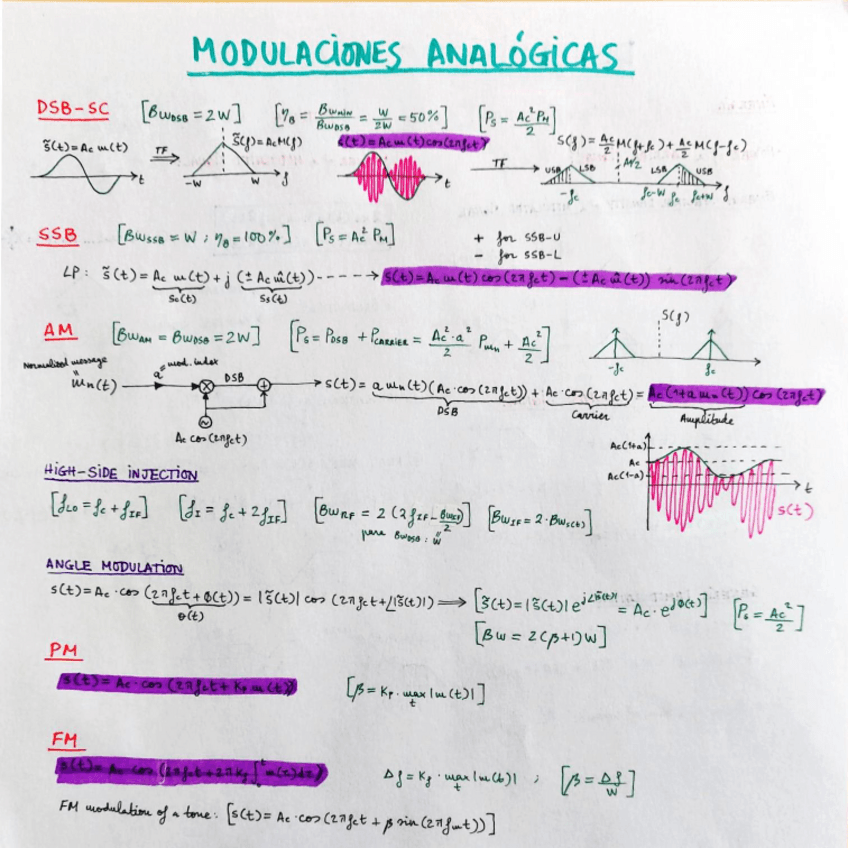 MODULACIONES ANALÓGICAS
DSB-SC [BW_DSB = 2W] [η_B = BWmin/BW_DSB = W/2W = 50%] [P_S = Ac² P_M / 2]
s̃(t) = Ac m(t) TF S̃(f) = Ac M(f) s(t) = Ac m(t) cos(2πfct) TF S(f) = Ac/2 M(f+fc) + Ac/2 M(f-fc)
t -W W f t USB LSB A/2 LSB USB -fc fc-W fc fc+W f
SSB [BW_SSB = W ; η_B = 100%] [P_S = Ac² P_M] + for SSB-U
- for SSB-L
LP: s̃(t) = Ac m(t) + j (± Ac m̂(t)) -----> s(t) = Ac m(t) cos(2πfct) - (± Ac m̂(t)) sin(2πfct)
Sc(t) Ss(t)
AM [BW_AM = BW_DSB = 2W] [P_S = P_DSB + P_CARRIER = Ac²·a²/2 P_mn + Ac²/2] S(f)
-fc fc
Normalized message a = mod. index
m_n(t) DSB s(t) = a m_n(t) (Ac·cos(2πfct)) + Ac·cos(2πfct) = Ac(1+a m_n(t)) cos(2πfct)
DSB Carrier Amplitude
Ac cos(2πfct)
Ac(1+a)
Ac
Ac(1-a)
t
s(t)
HIGH-SIDE INJECTION
[f_LO = fc + f_IF] [f_I = fc + 2f_IF] [BW_RF = 2 (2f_IF - BW_S(t)/2)] [BW_IF = 2·BW_S(t)]
para BW_DSB : W
ANGLE MODULATION
s(t) = Ac·cos(2πfct + Φ(t)) = |s̃(t)| cos(2πfct + ∠|s̃(t)|) ⟹ [s̃(t) = |s̃(t)| e^{j∠|s̃(t)|} = Ac·e^{jΦ(t)}] [P_S = Ac²/2]
θ(t)
[BW = 2(β+1)W]
PM
s(t) = Ac·cos(2πfct + Kp m(t)) [β = Kp·max_t |m(t)|]
FM
s(t) = Ac cos(2πfct + 2πKf ∫₀ᵗ m(τ)dτ) Δf = Kf·max_t |m(t)| ; [β = Δf/W]
FM modulation of a tone: [s(t) = Ac·cos(2πfct + β sin(2πfmt))]